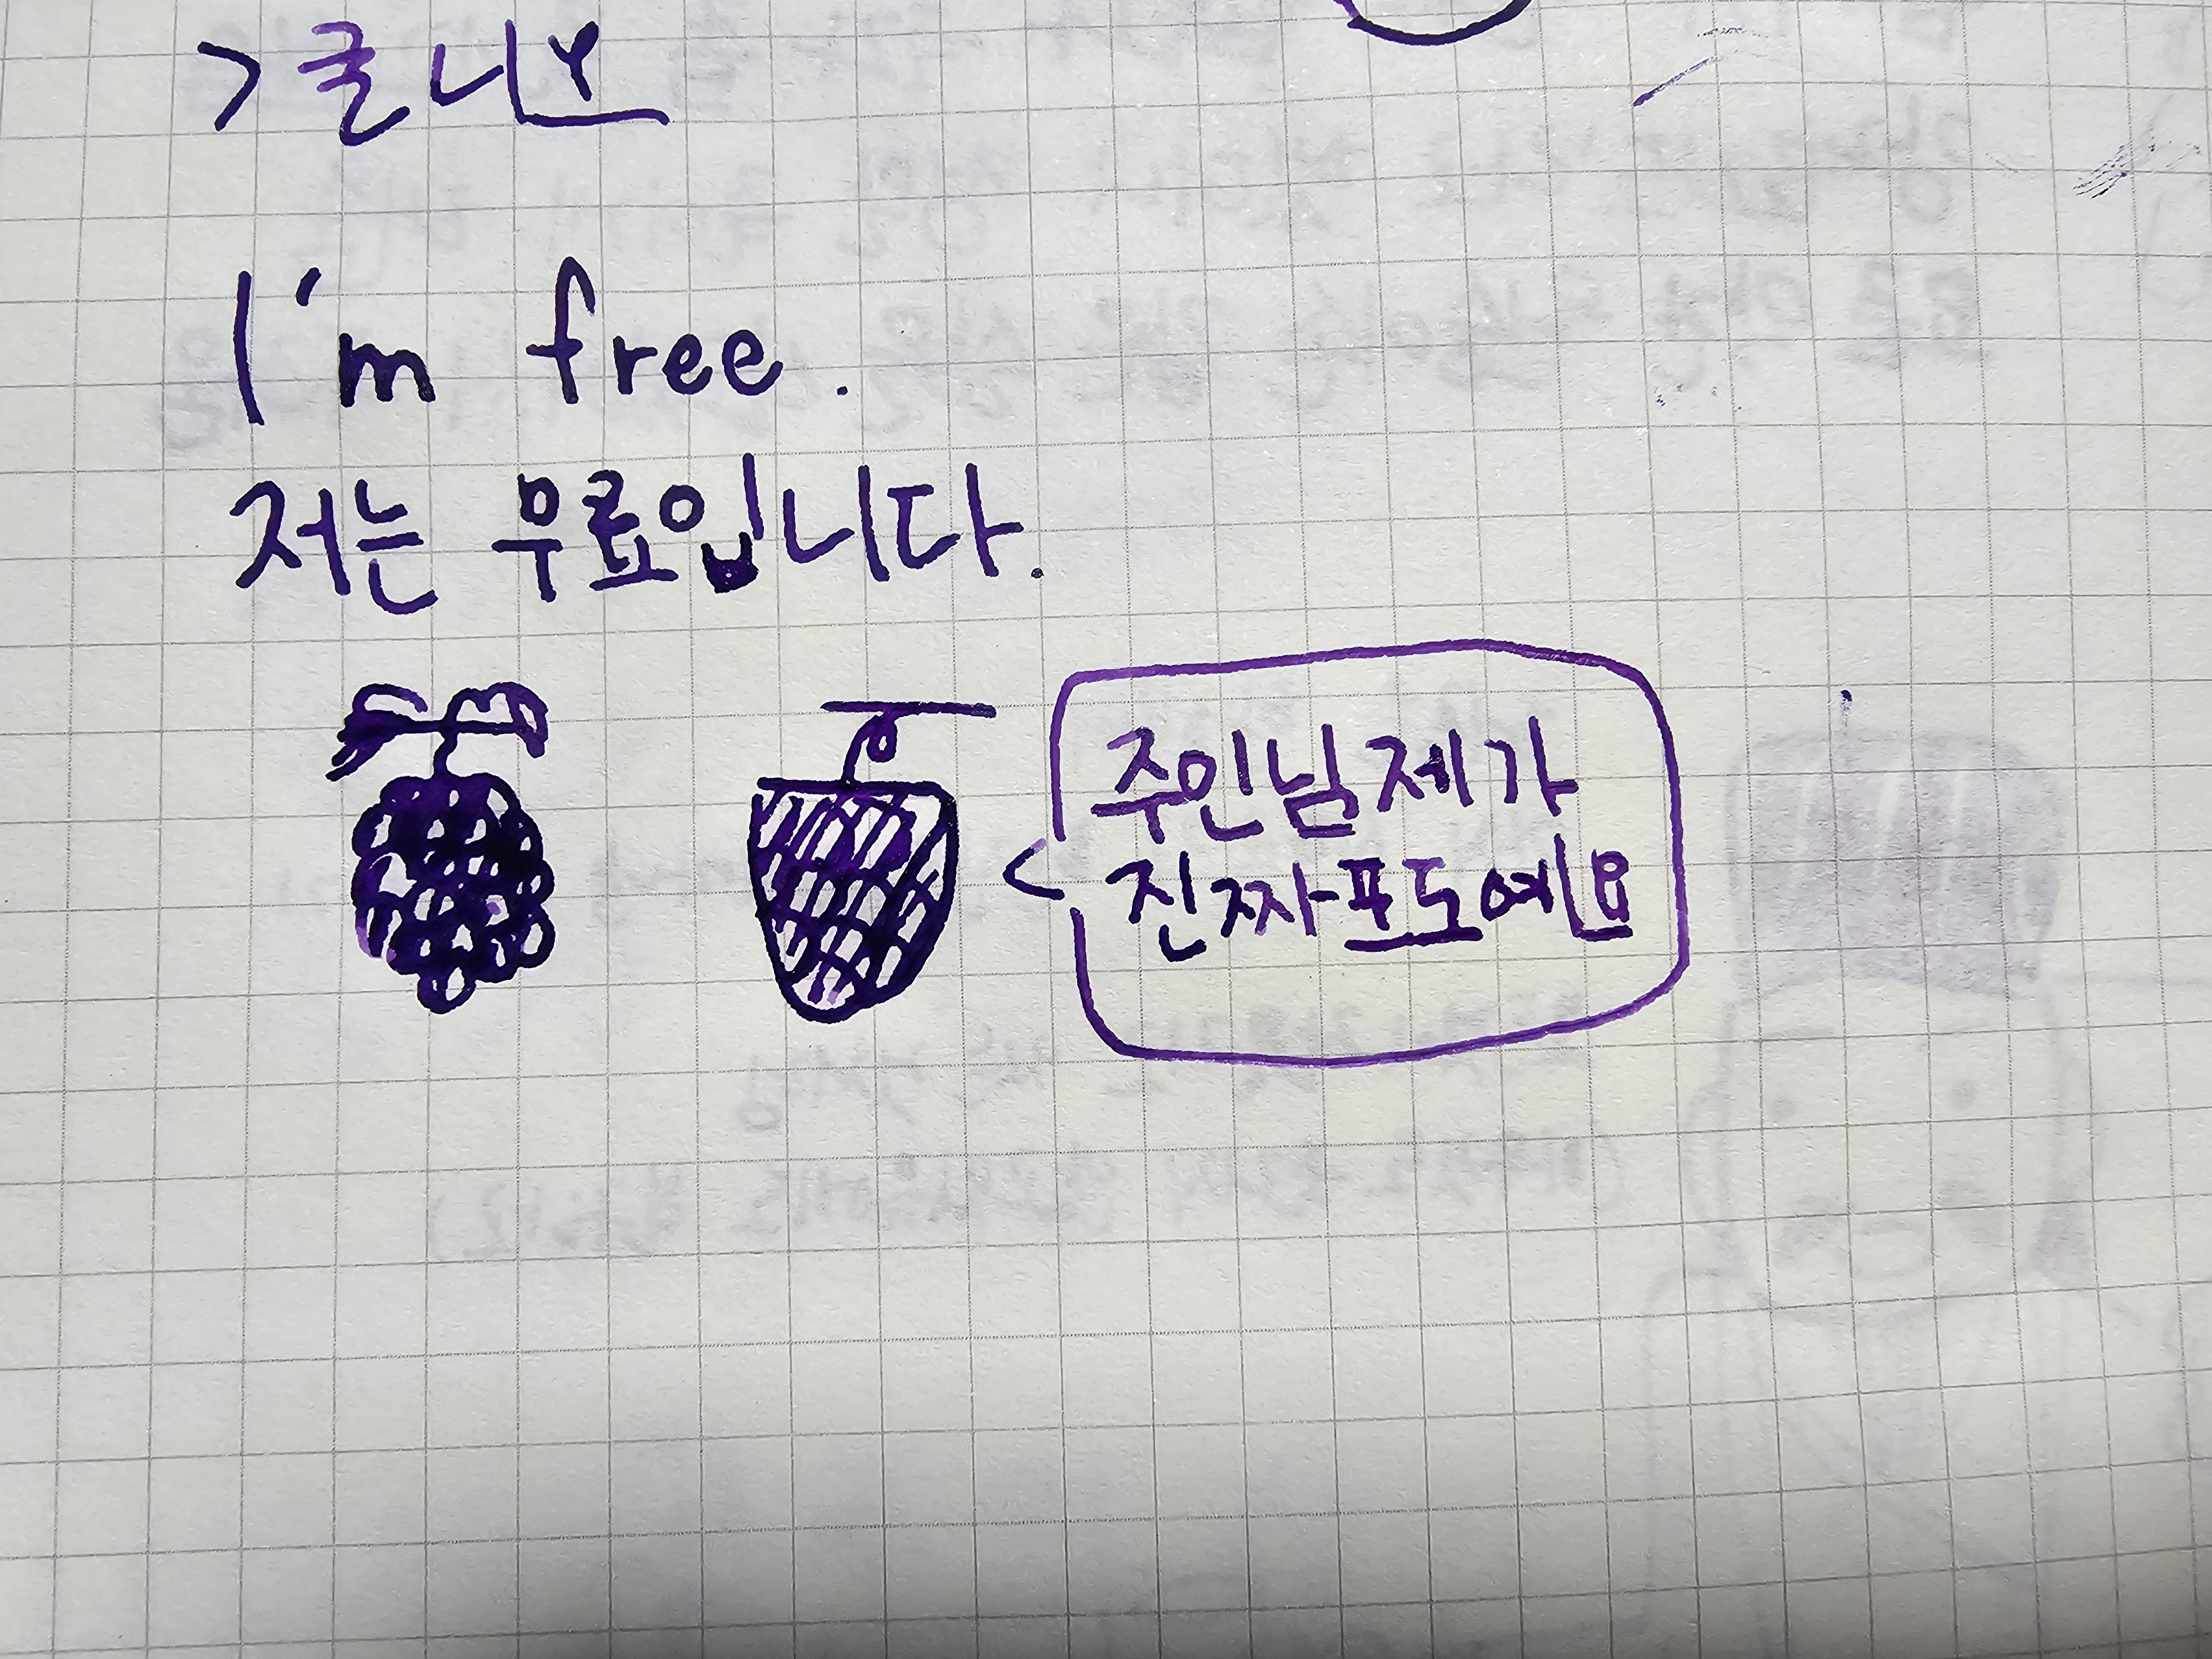 I'm free.
저는 무료입니다.
주인님 제가
진짜포도예요